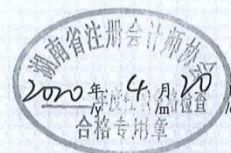 湖南省注册会计师协会
2020年 4月 20
年度任职资格检查
/y /m
合格专用章